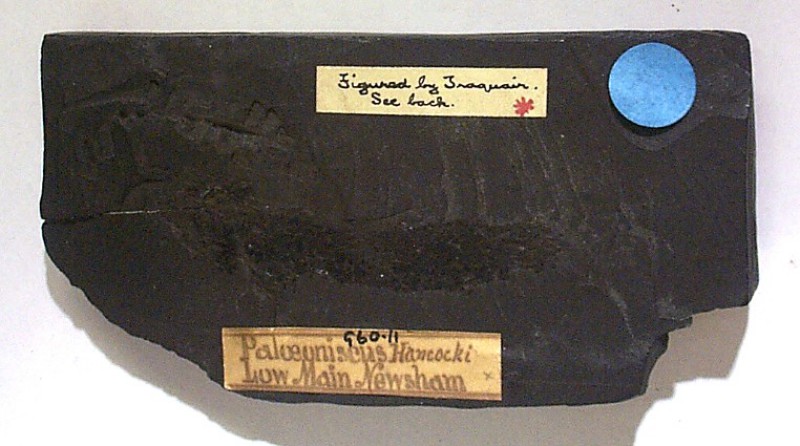 Figured by Traquair.
See back.
G60.11
Palæoniscus Hancocki
Low Main Newsham